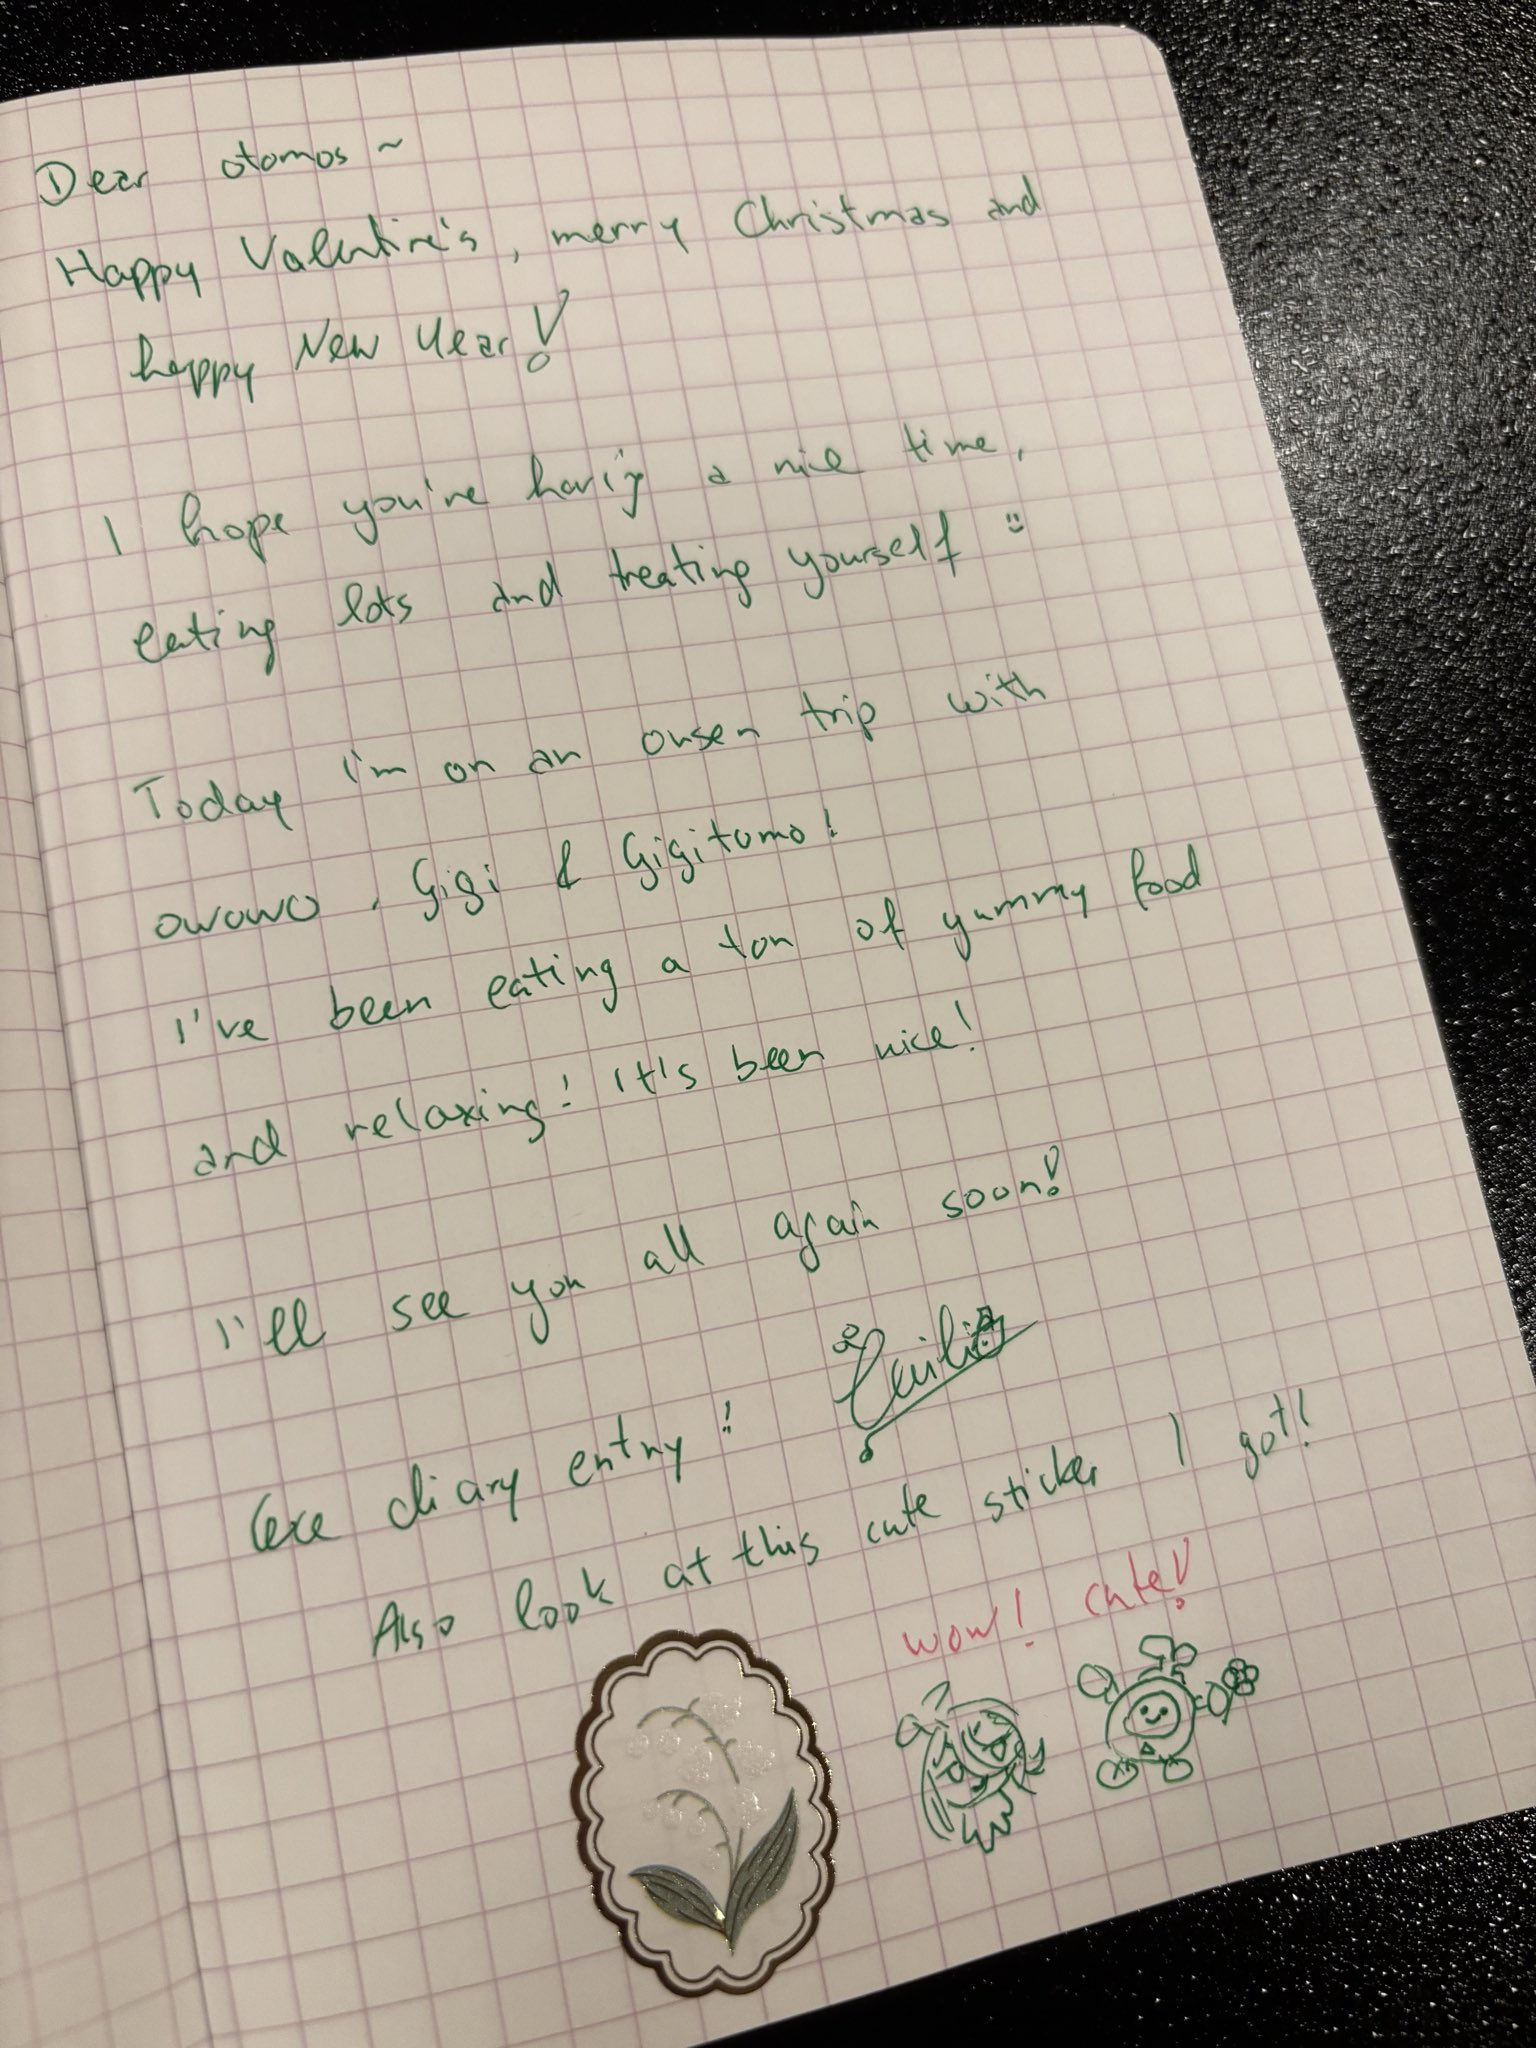 Dear otomos ~
Happy Valentine's, merry Christmas and
happy New Year!
I hope you're having a nice time,
eating lots and treating yourself :)
Today I'm on an onsen trip with
owowo, Gigi & Gigitomo!
I've been eating a ton of yummy food
and relaxing! It's been nice!
I'll see you all again soon!
Cecilia
Cece diary entry!!
Also look at this cute sticker I got!!
wow! cute!